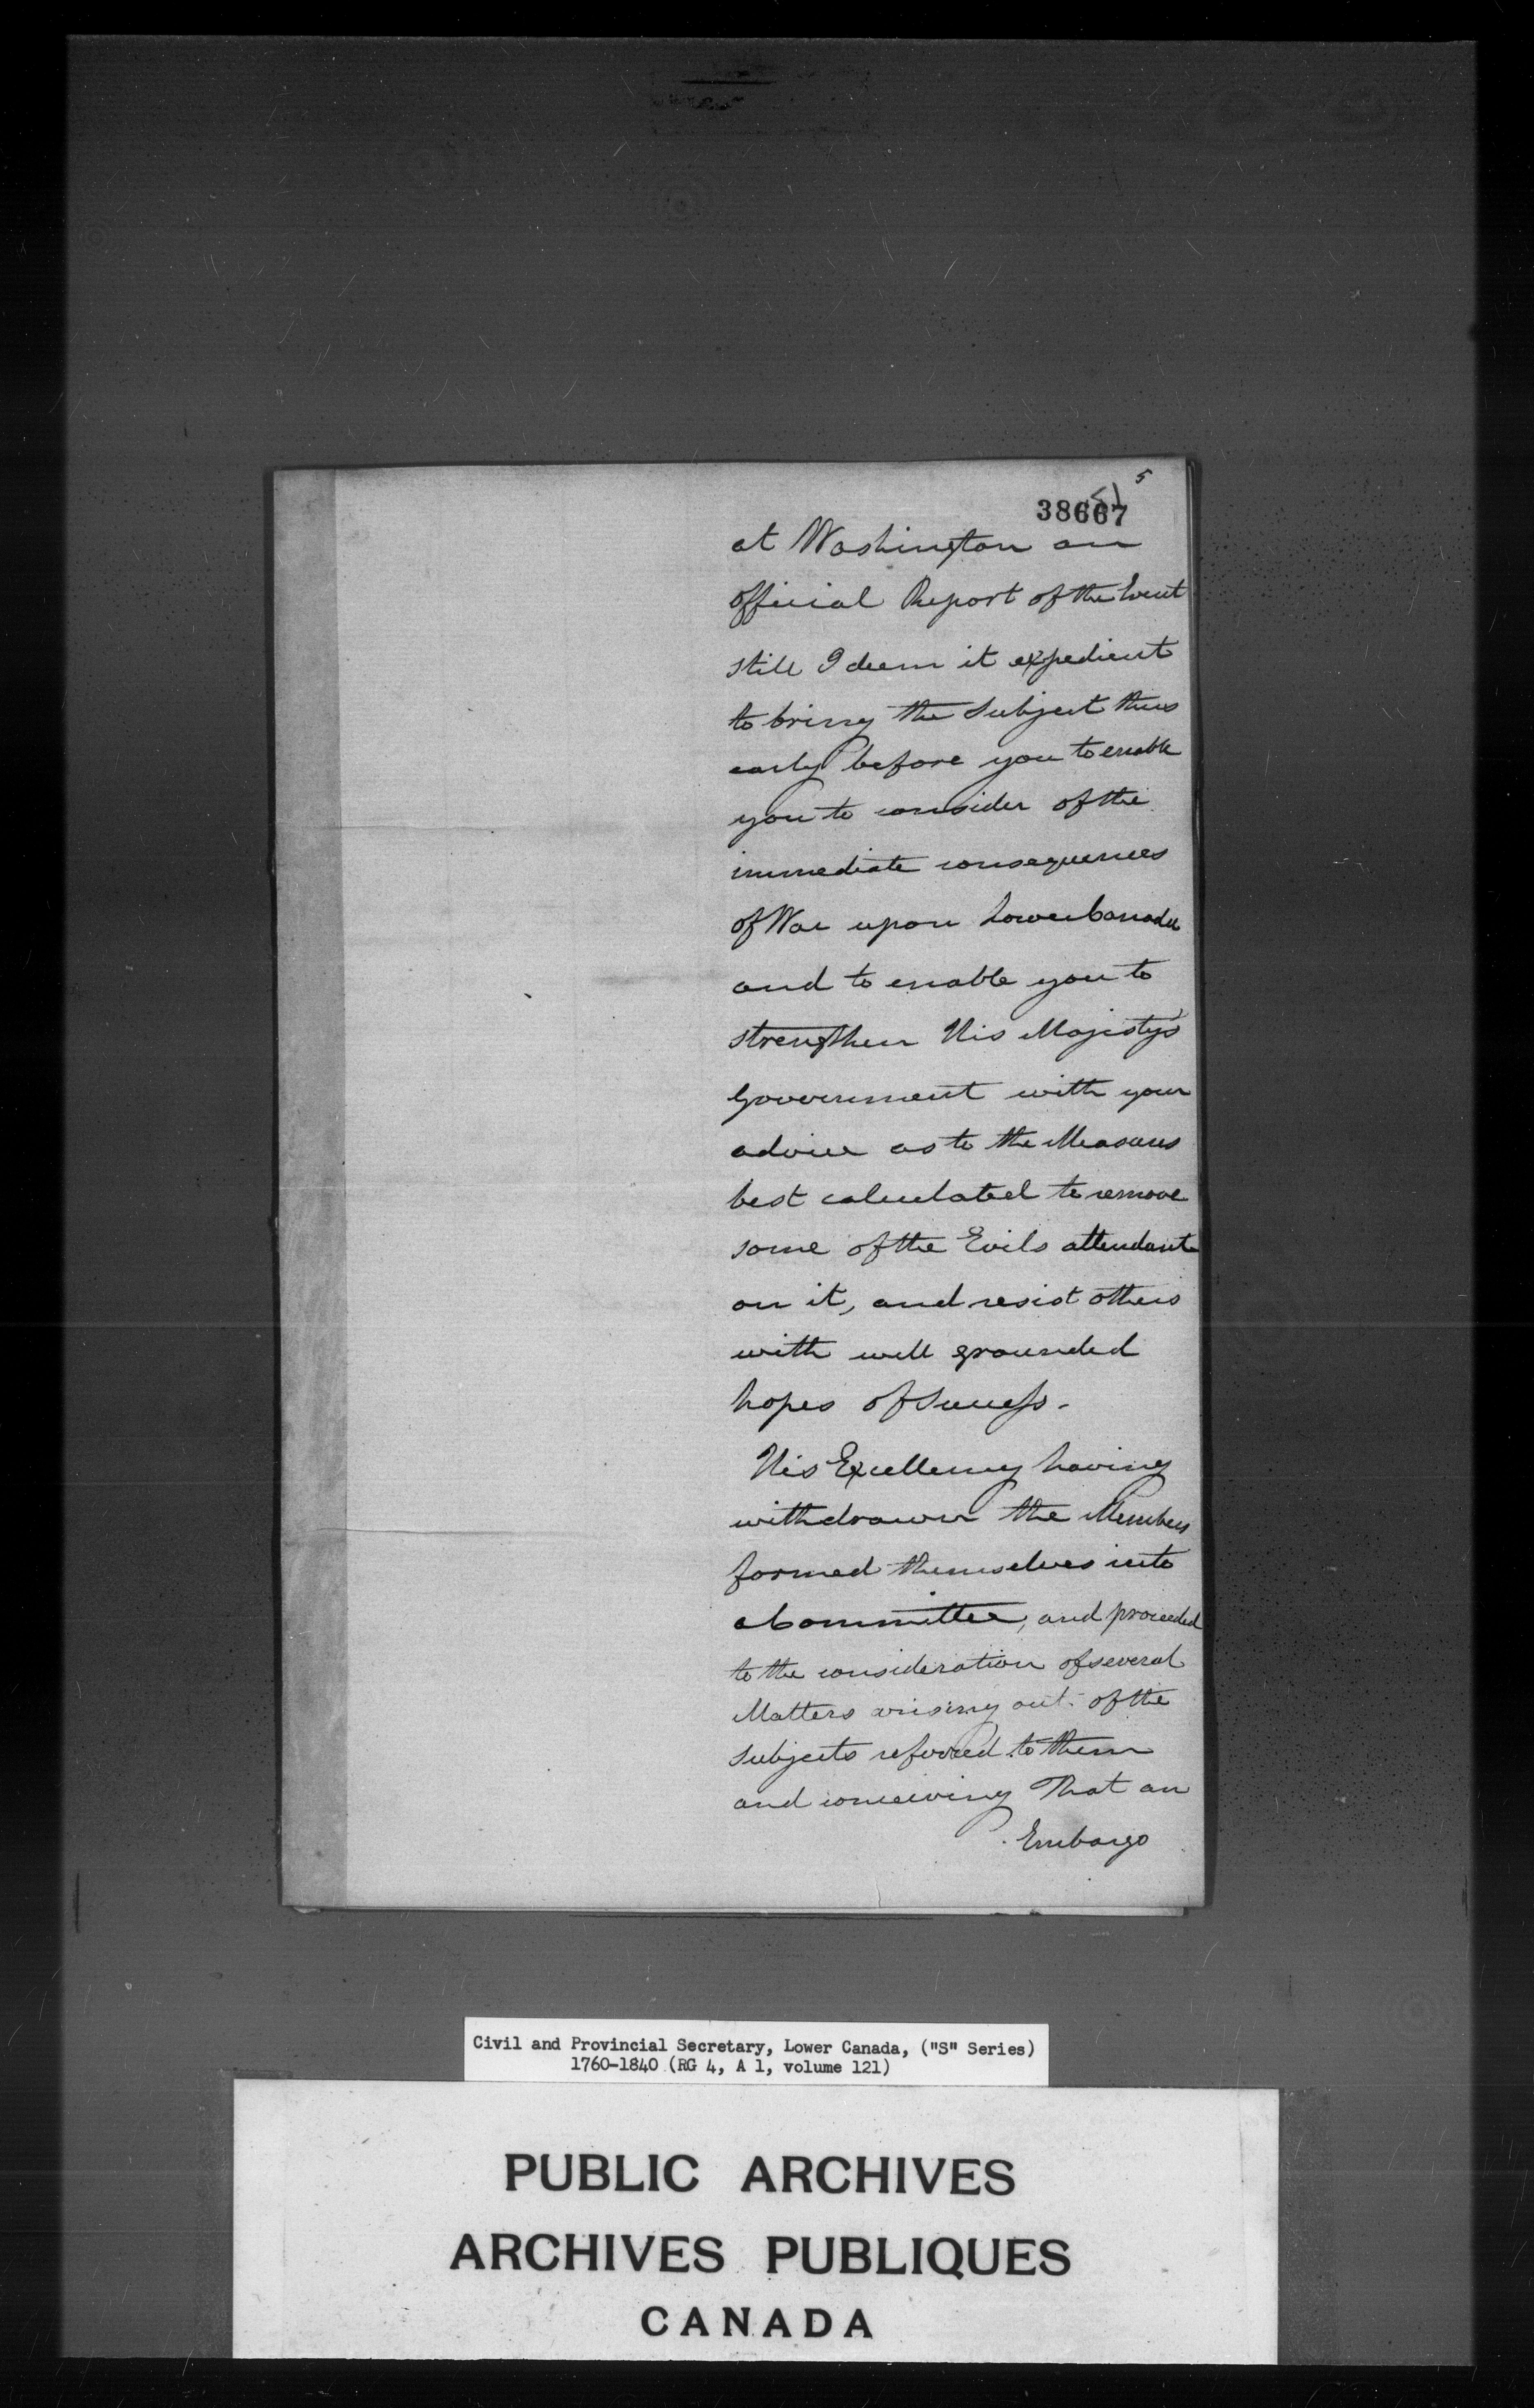 5
51
38667
at Washington an
official Report of the Event
still I deem it expedient
to bring the Subject thus
early before you to enable
you to consider of the
immediate consequences
of War upon Lower Canada
and to enable you to
strengthen His Majesty's
Government with your
advice as to the Measures
best calculated to remove
some of the Evils attendant
on it, and resist others
with well grounded
hopes of Success.
His Excellency having
withdrawn the Members
formed themselves into
a Committee, and proceeded
to the consideration of several
Matters arising out of the
Subjects referred to them
and conceiving That an
Embargo
Civil and Provincial Secretary, Lower Canada, ("S" Series)
1760-1840 (RG 4, A 1, volume 121)
PUBLIC ARCHIVES
ARCHIVES PUBLIQUES
CANADA